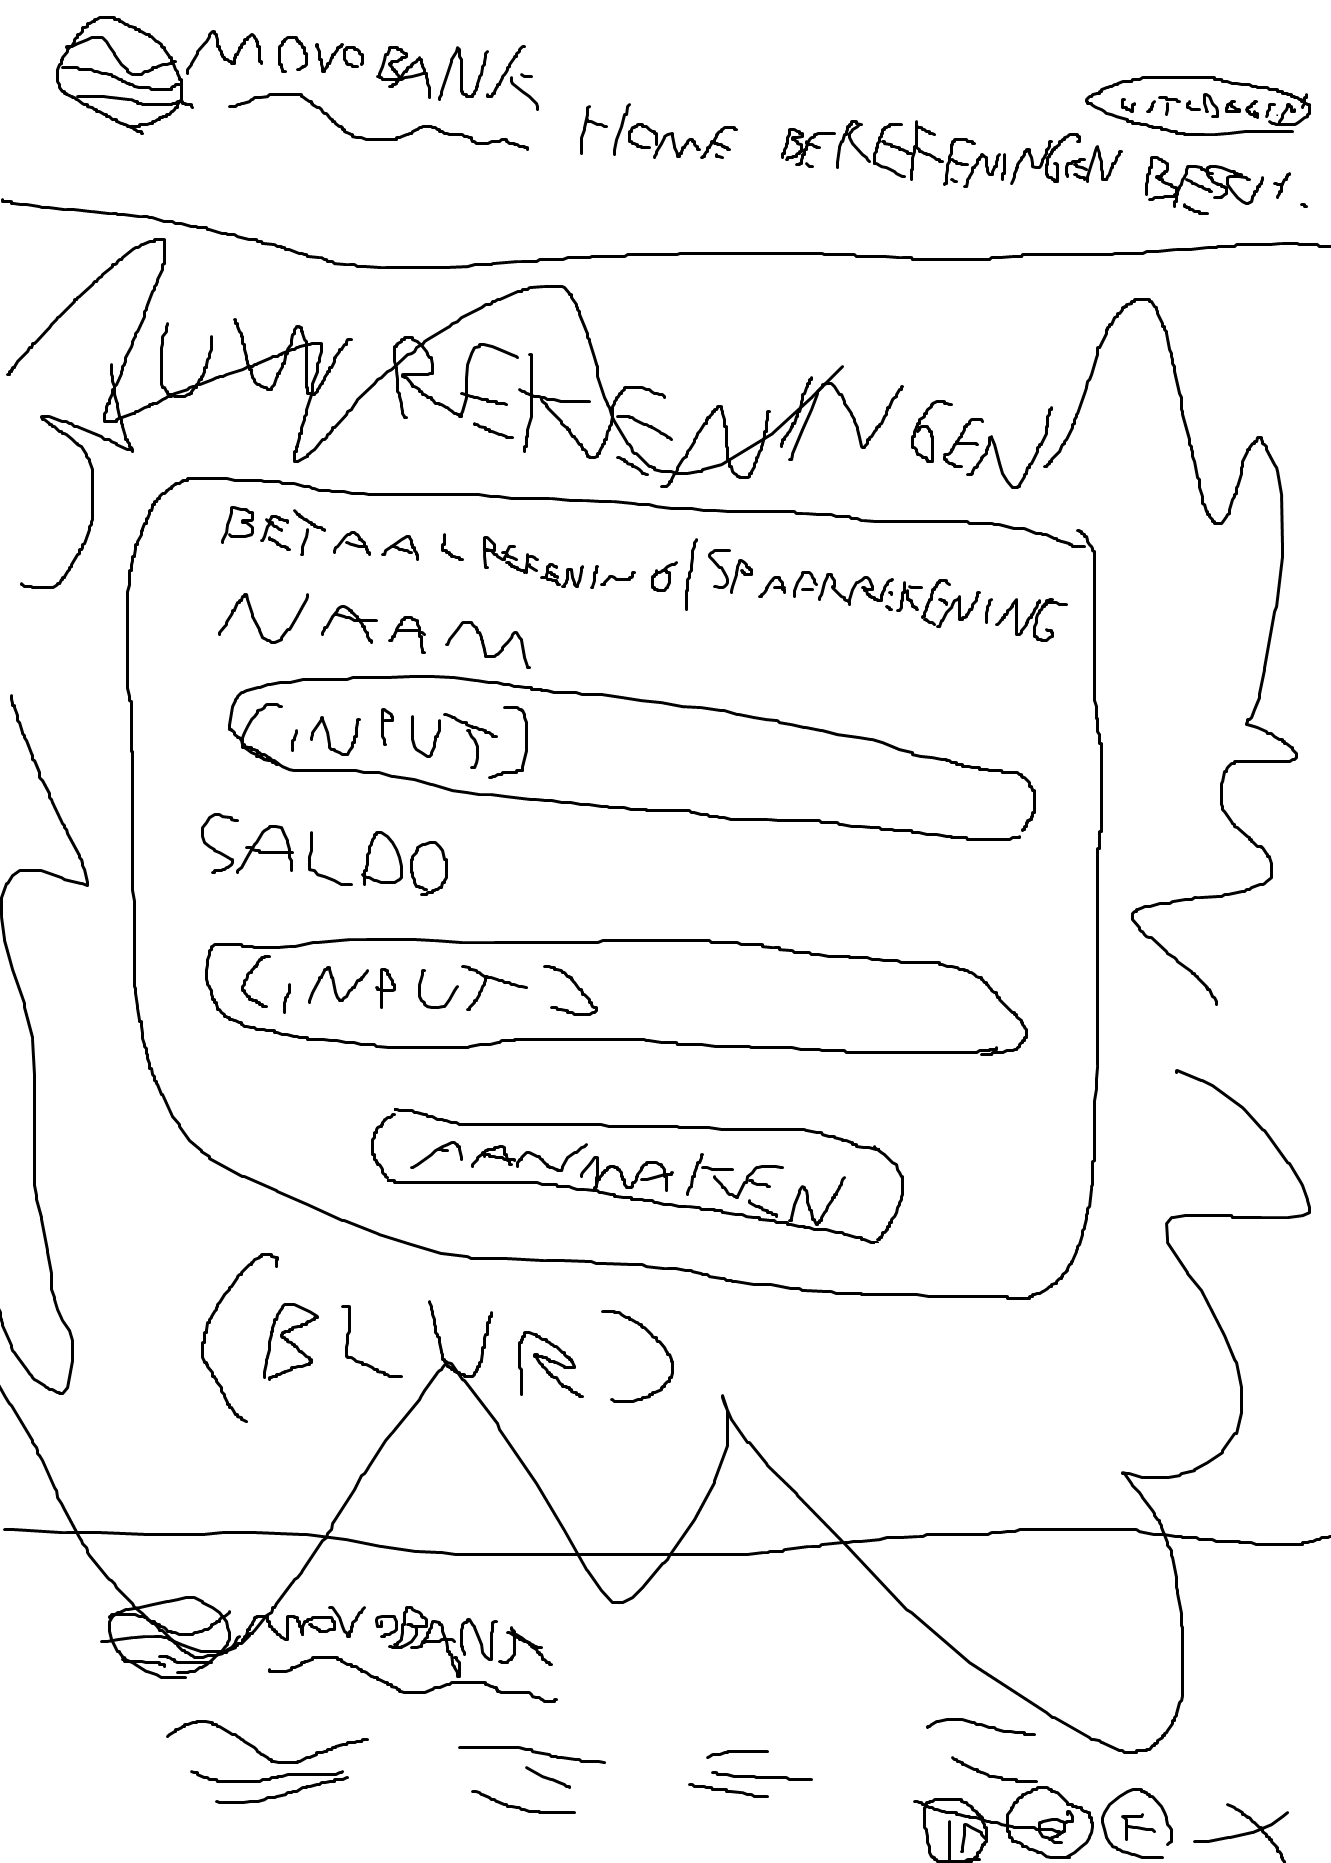 MOVOBANK
UITLOGGEN
HOME BEREKENINGEN BESCH.
UW REKENINGEN
BETAALREKENING/SPAARREKENING
NAAM
(INPUT)
SALDO
(INPUT)
AANMAKEN
(BLUR)
MOVOBANK
F X